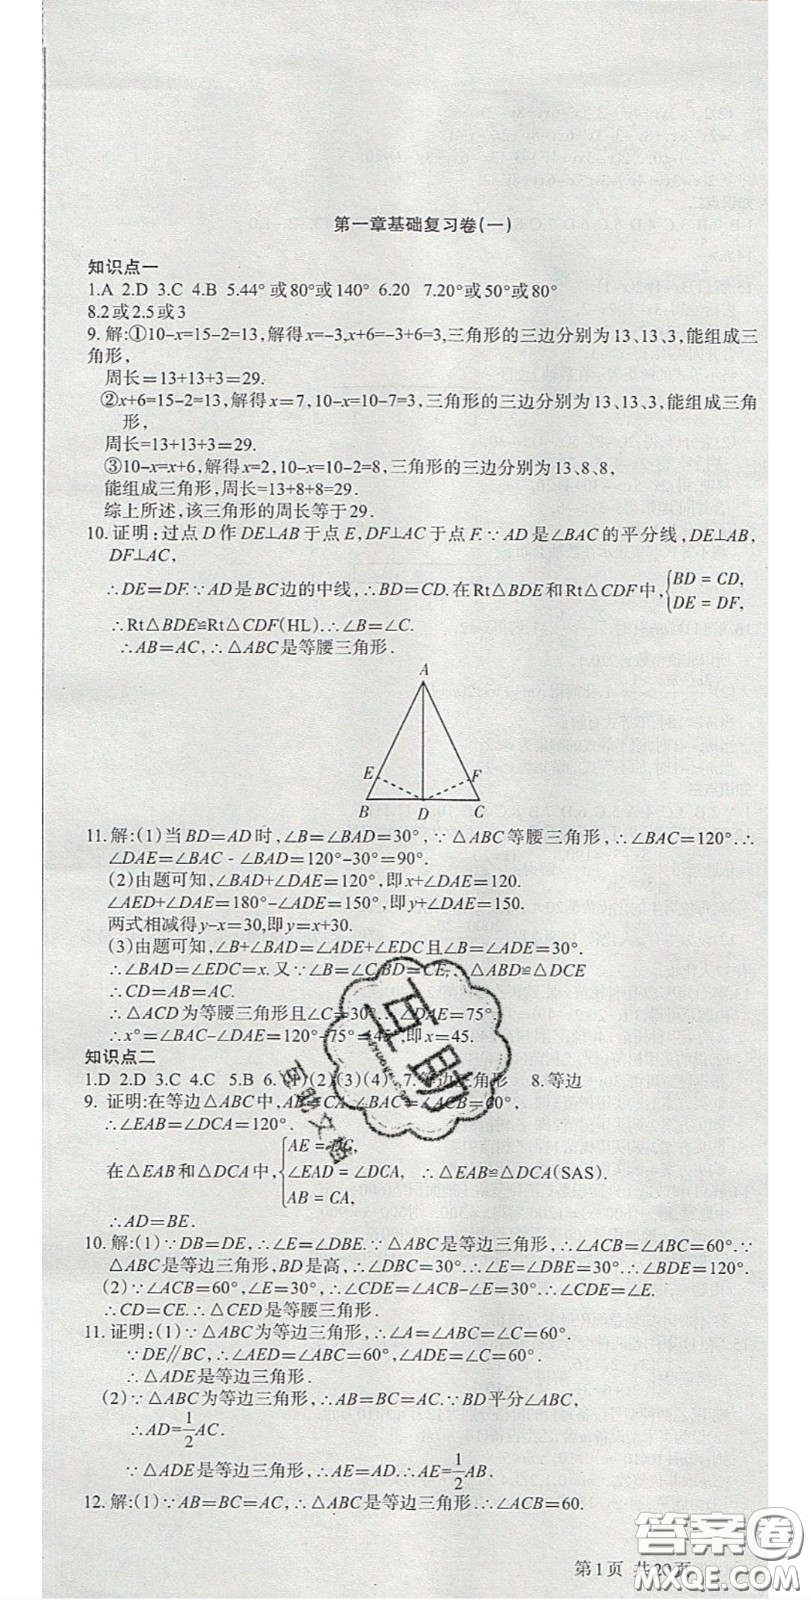 第一章基础复习卷(一)
知识点一
1.A 2.D 3.C 4.B 5.44°或80°或140° 6.20 7.20°或50°或80°
8.2或2.5或3
9.解:①10-x=15-2=13,解得x=-3,x+6=-3+6=3,三角形的三边分别为13、13、3,能组成三
角形,
周长=13+13+3=29.
②x+6=15-2=13,解得x=7,10-x=10-7=3,三角形的三边分别为13、13、3,能组成三角
形,
周长=13+13+3=29.
③10-x=x+6,解得x=2,10-x=10-2=8,三角形的三边分别为13、8、8,
能组成三角形,周长=13+8+8=29.
综上所述,该三角形的周长等于29.
10.证明:过点D作DE⊥AB于点E,DF⊥AC于点F.∵AD是∠BAC的平分线,DE⊥AB,
DF⊥AC,
∴DE=DF.∵AD是BC边的中线,∴BD=CD.在Rt△BDE和Rt△CDF中,{BD=CD,
DE=DF,
∴Rt△BDE≌Rt△CDF(HL).∴∠B=∠C.
∴AB=AC,∴△ABC是等腰三角形.
A
E F
B D C
11.解:(1)当BD=AD时,∠B=∠BAD=30°,∵△ABC等腰三角形,∴∠BAC=120°.∴
∠DAE=∠BAC-∠BAD=120°-30°=90°.
(2)由题可知,∠BAD+∠DAE=120°,即x+∠DAE=120.
∠AED+∠DAE=180°-∠ADE=150°,即y+∠DAE=150.
两式相减得y-x=30,即y=x+30.
(3)由题可知,∠B+∠BAD=∠ADE+∠EDC且∠B=∠ADE=30°.
∴∠BAD=∠EDC=x.又∵∠B=∠C,BD=CE,∴△ABD≌△DCE
∴CD=AB=AC.
∴△ACD为等腰三角形且∠C=30°.∴∠DAE=75°.
∴x°=∠BAC-∠DAE=120°-75°=45°,即x=45.
知识点二
1.D 2.D 3.C 4.C 5.B 6.(1)(2)(3)(4) 7.等边三角形 8.等边
9. 证明:在等边△ABC中,AB=CA,∠BAC=∠ACB=60°,
∴∠EAB=∠DCA=120°.
在△EAB和△DCA中,{AE=DC,
∠EAD=∠DCA, ∴△EAB≌△DCA(SAS).
AB=CA,
∴AD=BE.
10.解:(1)∵DB=DE,∴∠E=∠DBE.∵△ABC是等边三角形,∴∠ACB=∠ABC=60°.∵
△ABC是等边三角形,BD是高,∴∠DBC=30°.∴∠E=∠DBE=30°.∴∠BDE=120°.
(2)∵∠ACB=60°,∠E=30°,∴∠CDE=∠ACB-∠E=30°.∴∠CDE=∠E.
∴CD=CE.∴△CED是等腰三角形.
11.证明:(1)∵△ABC为等边三角形,∴∠A=∠ABC=∠C=60°.
∵DE∥BC,∴∠AED=∠ABC=60°,∠ADE=∠C=60°.
∴△ADE是等边三角形.
(2)∵△ABC为等边三角形,∴AB=BC=AC.∵BD平分∠ABC,
∴AD=1/2AC.
∵△ADE是等边三角形,∴AE=AD.∴AE=1/2AB.
12.解:(1)∵AB=BC=AC,∴△ABC是等边三角形.∴∠C=60.
第1页 共20页
互助
互助文
答案圈
MXQE.COM